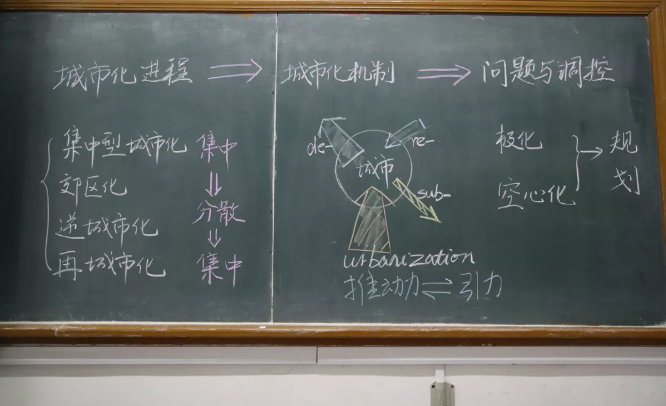 城市化进程 ⇒ 城市化机制 ⇒ 问题与调控
集中型城市化
郊区化
逆城市化
再城市化
集中
⇓
分散
↓
集中
de-
re-
城市
sub-
urbanization
推动力 ⇌ 引力
极化
空心化
→ 规划